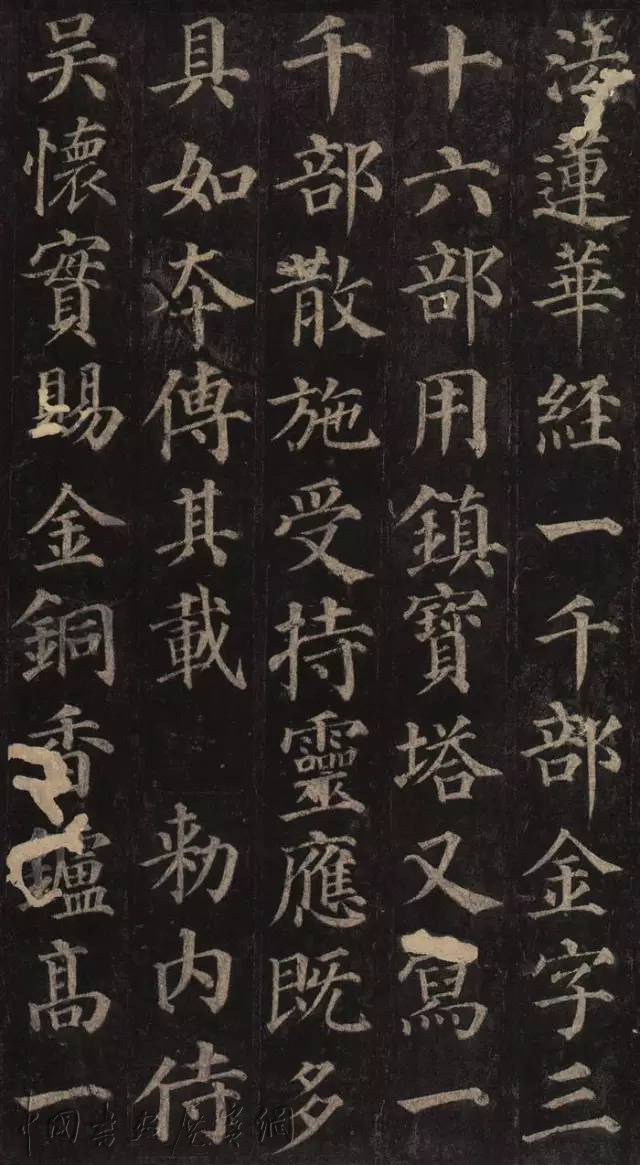 法蓮華経一千部金字三
十六部用鎮寶塔又寫一
千部散施受持靈應既多
具如本傳其載 敕内侍
吳懷實賜金銅香爐高一
中国书法庄美網